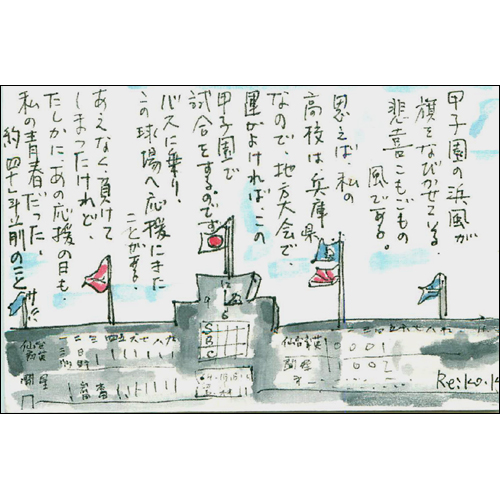 甲子園の浜風が
旗をなびかせている。
悲喜こもごもの
風である。
思えば、私の
高校は、兵庫県
なので、地方大会で
運がよければ、この
甲子園で
試合をするのです。
バスに乗り、
この球場へ応援にきた
ことがある。
あえなく負けて
しまったけれど、
たしかに、あの応援の日も、
私の青春だった。
約四十年前のこと
12
9
3
6
S
B
C
一二三四五六七八九
仙台育英
0001
開星
0002
Reiko.K